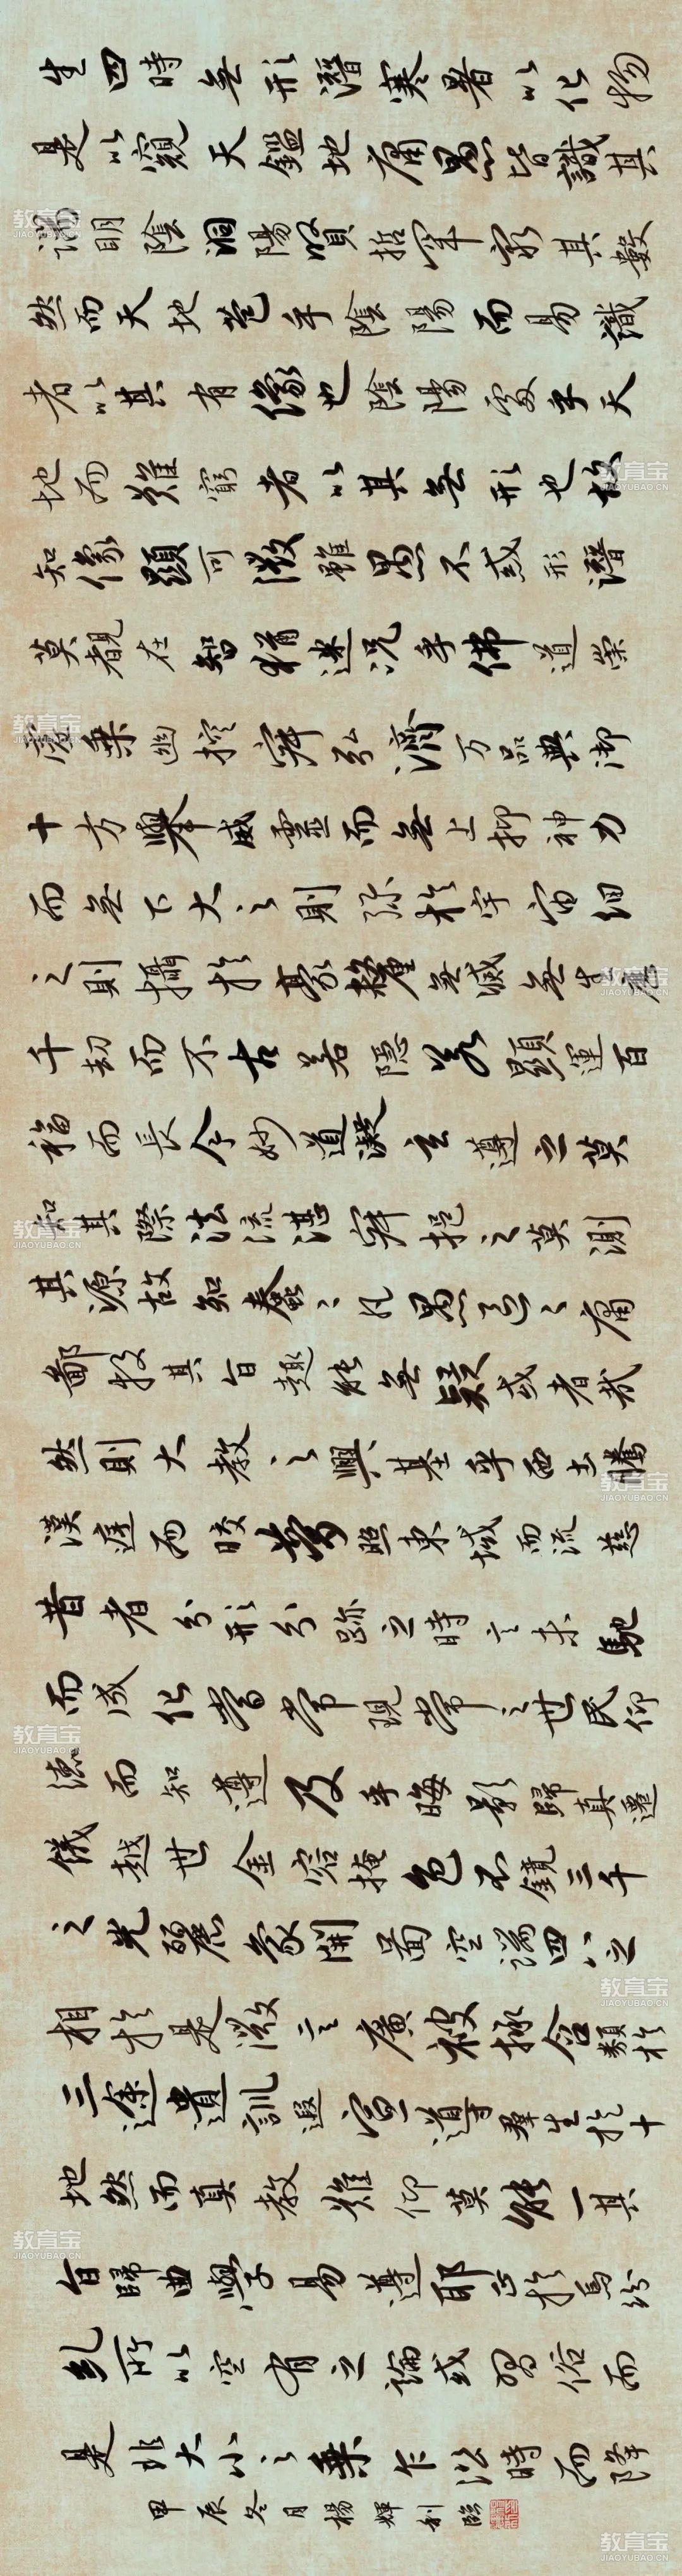 生四時無形潛寒暑以化物
是以窺天鑑地庸愚皆識其
端明陰洞陽賢哲罕窮其數
然而天地苞乎陰陽而易識
者以其有像也陰陽處乎天
地而難窮者以其無形也故
知像顯可徵雖愚不惑形潛
莫覩在智猶迷況乎佛道崇
虛乘幽控寂弘濟万品典御
十方舉威靈而無上抑神力
而無下大之則彌於宇宙細
之則攝於豪釐無滅無生歷
千劫而不古若隱若顯運百
福而長今妙道凝玄遵之莫
知其際法流湛寂挹之莫測
其源故知蠢々凡愚區々庸
鄙投其旨趣能無疑或者哉
然則大教之興基乎西土騰
漢庭而皎夢照東域而流慈
昔者分形分跡之時言未馳
而成化當常現常之世民仰
德而知遵及乎晦影歸真遷
儀越世金容掩色不鏡三千
之光麗象開圖空端四八之
相於是微言廣被拯含類於
三途遺訓遐宣導群生於十
地然而真教難仰莫能一其
旨歸曲學易遵耶正於焉紛
糺所以空有之論或習俗而
是非大小之乘乍沿時而隆
甲辰冬月楊輝利臨
教育宝
JIAOYUBAO.CN